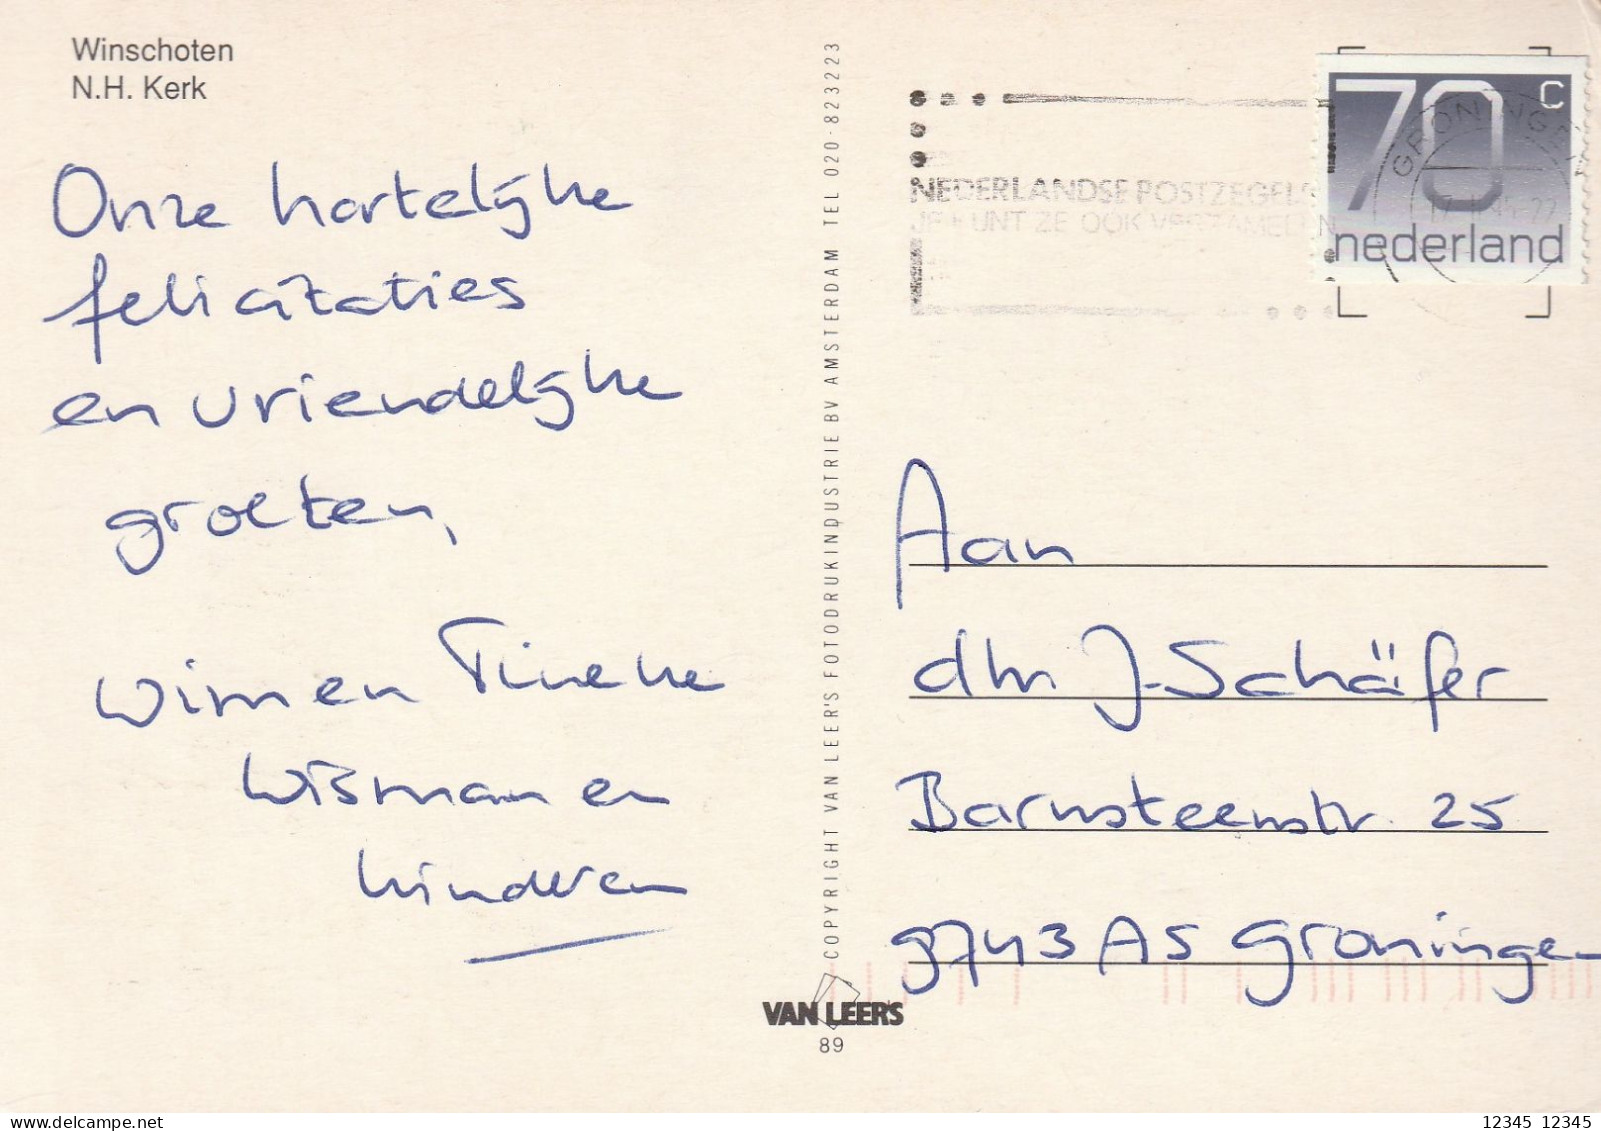 Winschoten
N.H. Kerk
Onze hartelijke
felicitaties
en vriendelijke
groeten,
Wim en Tineke
Wisman en
kinderen
COPYRIGHT VAN LEER'S FOTODRUKINDUSTRIE BV AMSTERDAM TEL 020-823223
VAN LEER'S
89
NEDERLANDSE POSTZEGELS
JE KUNT ZE OOK VERZAMELEN
70 C
nederland
GRONINGEN
Aan
dhr J. Schäfer
Barnsteenstr. 25
9743 AS Groningen
delcampe.net
mustafi
12345 12345